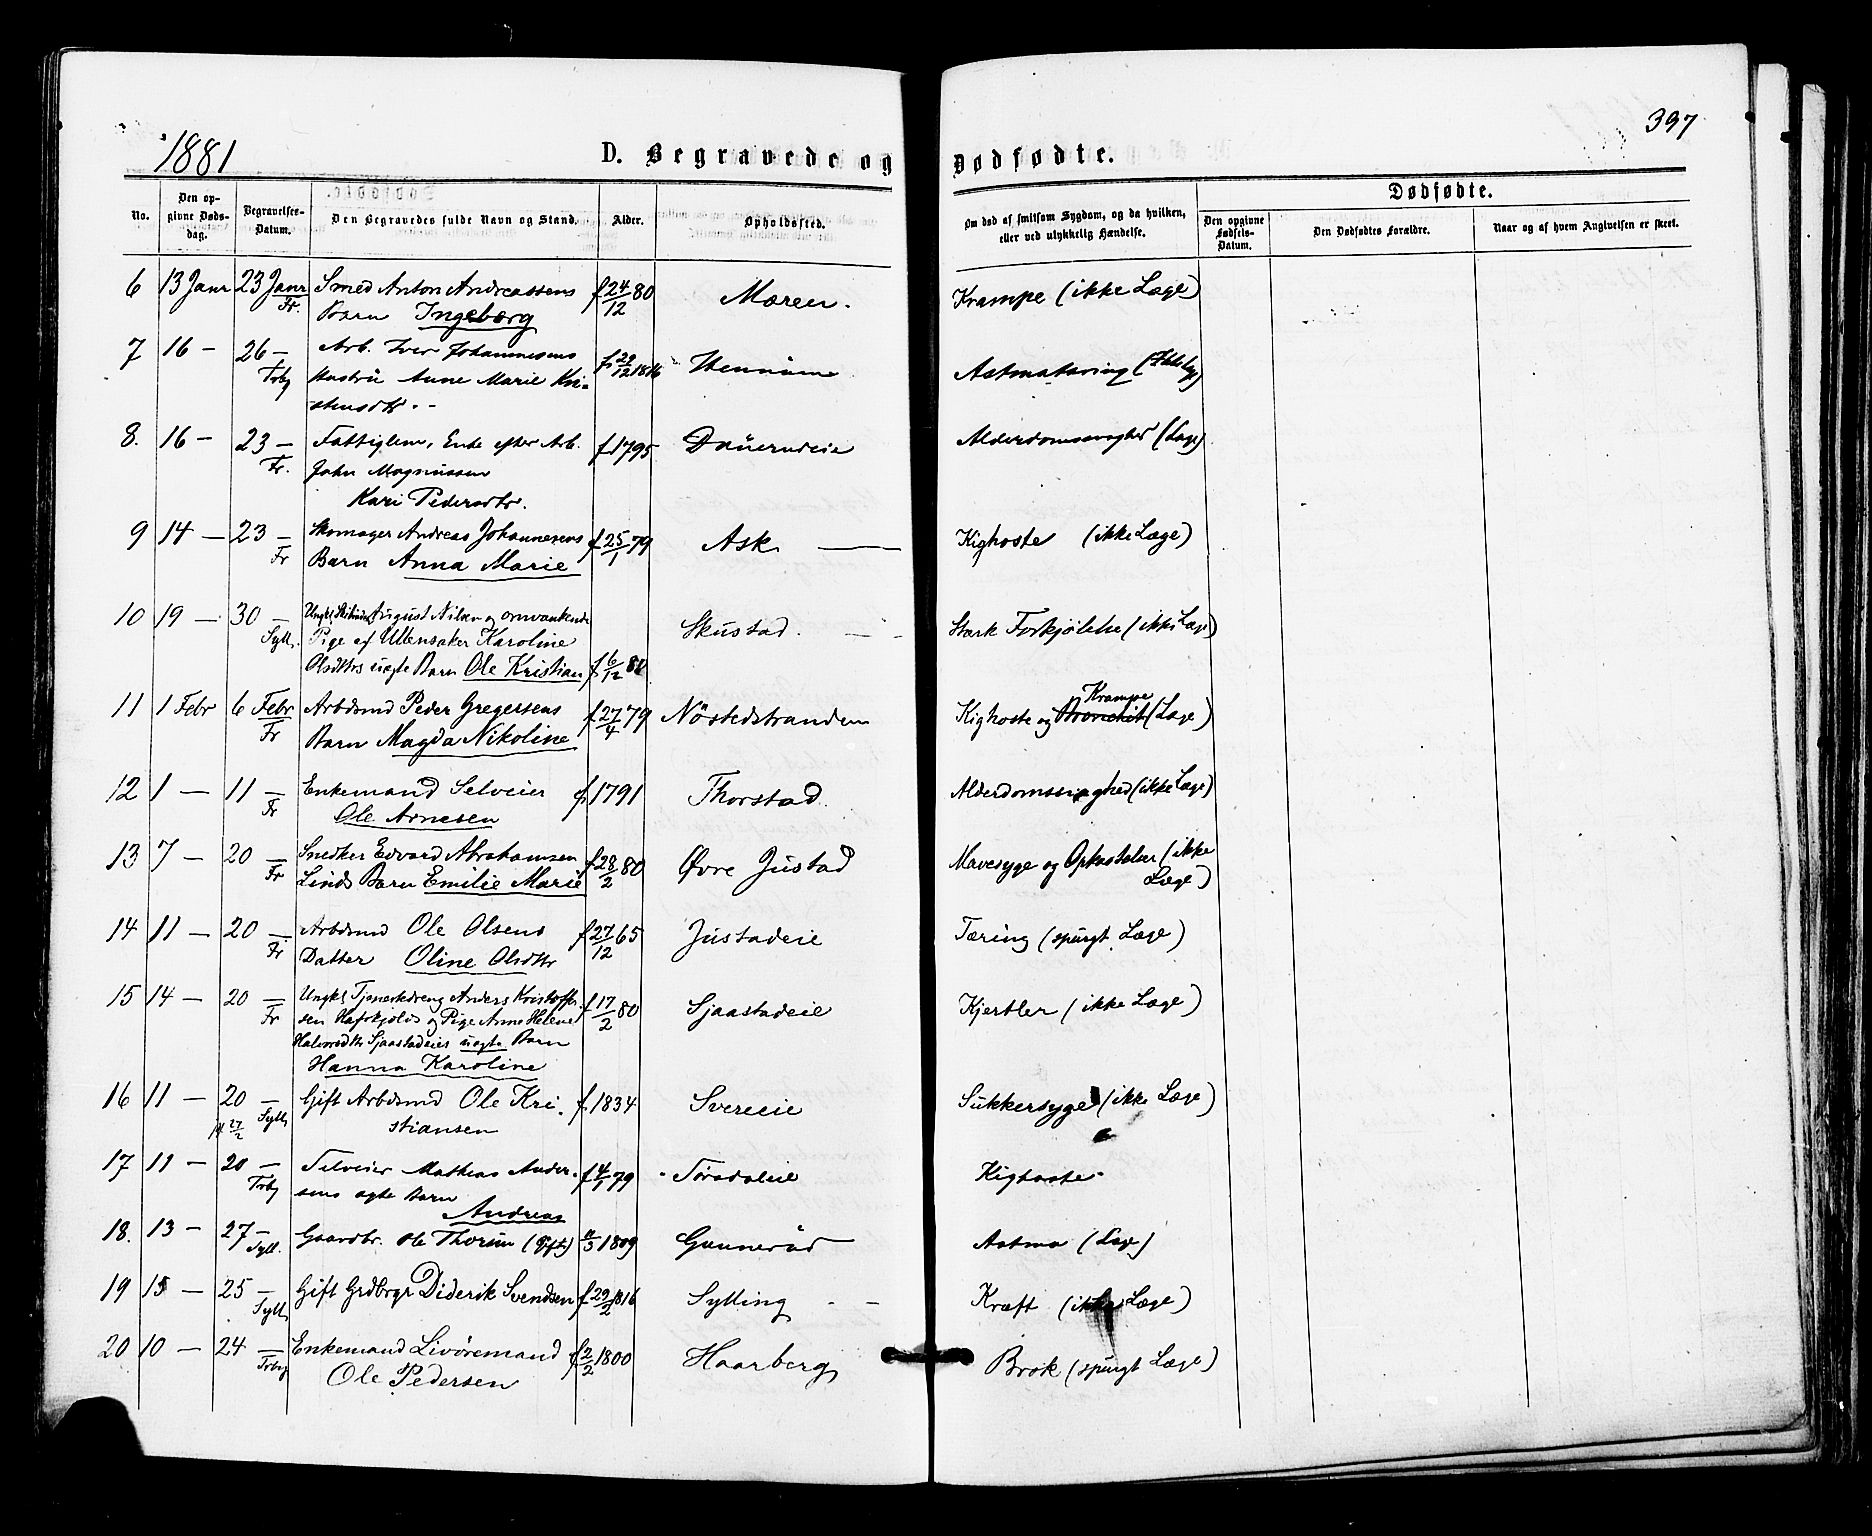 397
1881
D. Begravede og Dødfødte.
Dødfødte.
No.
Den op-
givne Døds-
dag.
Begravelses-
Datum.
Den Begravedes fulde Navn og Stand.
Alder.
Opholdssted.
Om død af smitsom Sygdom, og da hvilken,
eller ved ulykkelig Hændelse.
Den opgivne
Fødsels-
Datum.
Den Dødfødtes Forældre.
Naar og af hvem Angivelsen er skeet.
6 13 Janr 23 Janr Smed Anton Andreassens f 24/12 80 Mæren. Krampe (ikke Læge)
Fr. Barn Ingeborg
7 16 - 26 - Arb. Iver Johannesens f 29/12 1816 Astmatæring
Trbg Hustru Anne Marie Kri-
stensdtr.
8. 16 - 23 - Fattiglem, Enke efter Arb. f 1795 Alderdomssvaghed (Læge)
Fr. John Magnussen
Kari Pedersdtr.
9 14 - 23 - Skomager Andreas Johannesens f 25/1 79 Ask Kighoste (ikke Læge)
Fr Barn Anna Marie
10 19 - 30 - August Nilsen og omvankende Skustad. Stærk Forkjølelse (ikke Læge)
Syll. Pige af Ullensaker Karoline
Olsdtrs uægte Barn Ole Kristian f 6/12 80
Krampe
11 1 Febr 6 Febr Arbdsmd Peder Gregersens f 27/4 79 Nöstedstranden Kighoste og Bronchit (Læge)
Fr Barn Magda Nikoline
12 1 - 11 - Enkemand Selveier f 1791 Thorstad Alderdomssvaghed (ikke Læge)
Fr Ole Arnesen
13 7 - 20 - Snedker Edvard Abrahamsen f 28/2 80 Øvre Justad Mavesyge og Opkastelser (ikke
Fr Linds Barn Emilie Marie Læge)
14 11 - 20 - Arbdsmd Ole Olsens f 27/12 65 Justadeie Tæring (spurgt Læge)
Fr Datter Oline Olsdtr
15 14 - 20 - Ungkl Tjenestedreng Anders Kristoffer- f 17/2 80 Sjaastadeie Kjertler (ikke Læge)
Fr sen Hafskjolds og Pige Anne Helene
Halvorsdtr Sjaastadeies uægte Barn
Hanna Karoline
16 11 - 20 - Gift Arbdsmd Ole Kri- f 1834 Svereeie Sukkersyge (ikke Læge)
27/2 Syll. stiansen
17 11 - 20 - Selveier Mathias Ander- f 4/1 79 Kighoste
Trbg sens ægte Barn
Andreas
18. 13 - 27 - Gaardbr. Ole Thorsen (Gift) 1809 Gunnerud Astma (Læge)
Syll.
19 15 - 25 - Gift Grdbrgr Diderik Svendsen f 29/2 1816 Sylling Kræft (ikke Læge)
Syll.
20 10 - 24 - Enkemand Livöremand f 2/2 1800 Haarberg Brok (spurgt Læge)
Trbg Ole Pedersen